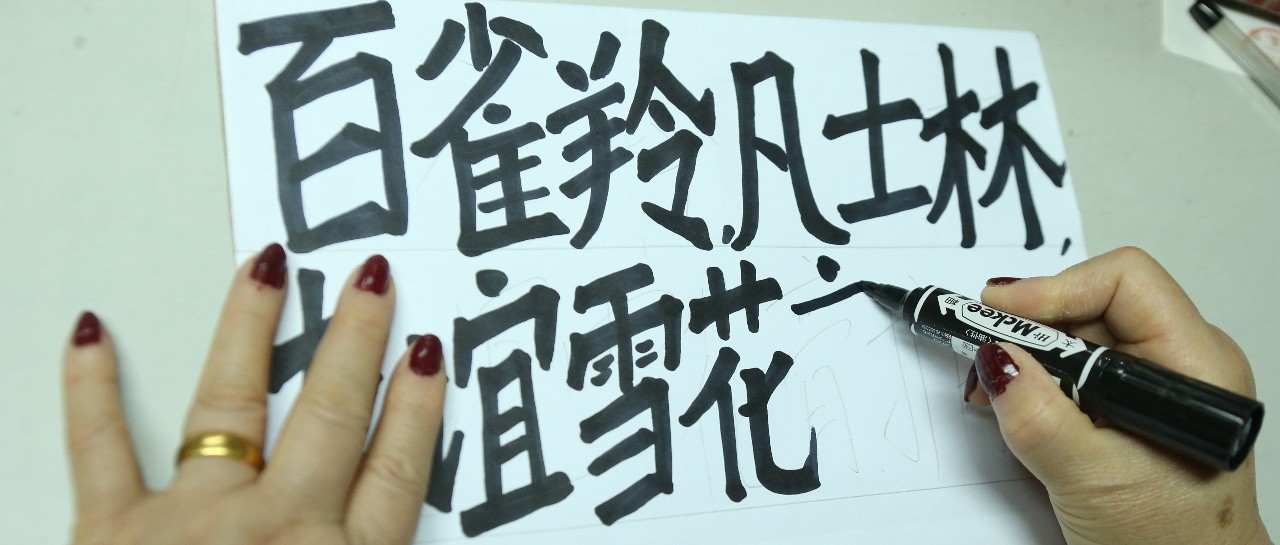 百雀羚,凡士林,
谊雪花
Hi-Mckee